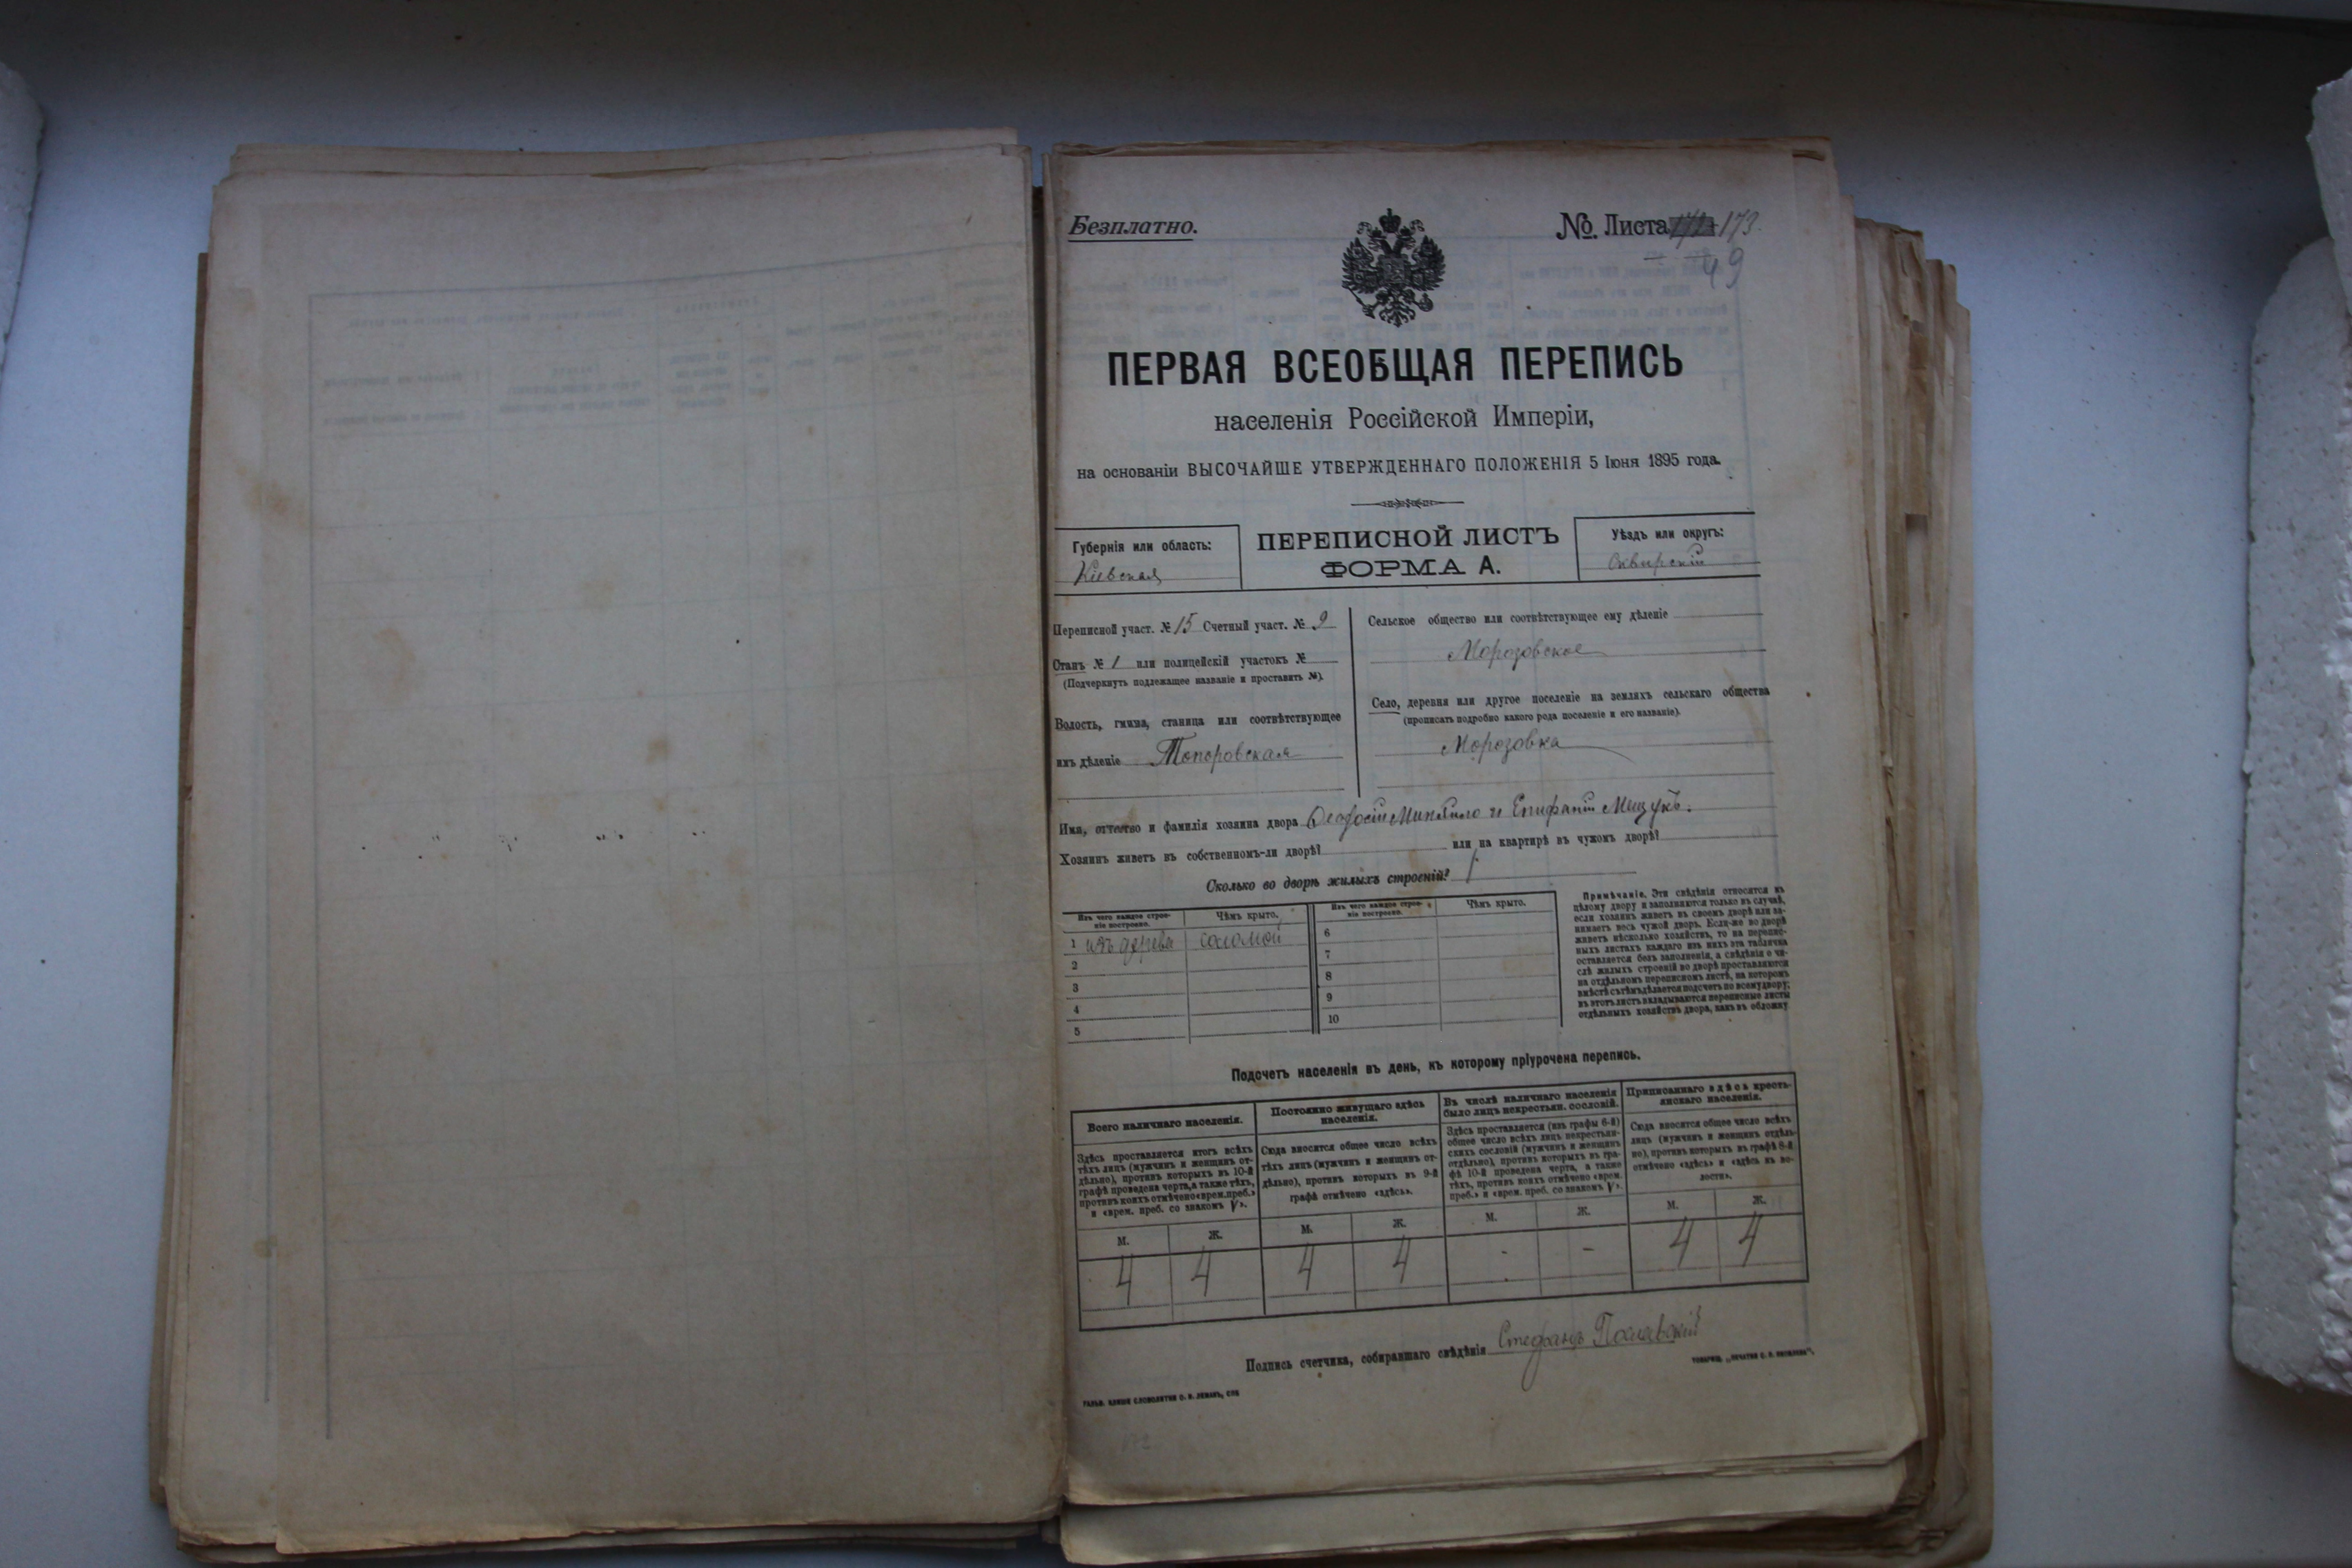 Безплатно.
№ Листа 173
49
ПЕРВАЯ ВСЕОБЩАЯ ПЕРЕПИСЬ
населенія Россійской Имперіи,
на основаніи ВЫСОЧАЙШЕ УТВЕРЖДЕННАГО ПОЛОЖЕНІЯ 5 Іюня 1895 года.
Губернія или область:
Кіевская
ПЕРЕПИСНОЙ ЛИСТЪ
ФОРМА А.
Уѣздъ или округъ:
Сквирскій
Переписной участ. № 15 Счетный участ. № 9
Станъ № 1 или полицейскій участокъ №
(Подчеркнуть подлежащее названіе и проставить №).
Волость, гмина, станица или соотвѣтствующее
имъ дѣленіе Топоровская
Сельское общество или соотвѣтствующее ему дѣленіе
Морозовское
Село, деревня или другое поселеніе на земляхъ сельскаго общества
(прописать подробно какого рода поселеніе и его названіе).
Морозовка
Имя, отчество и фамилія хозяина двора и Епифаній Мищукъ.
Хозяинъ живетъ въ собственномъ-ли дворѣ? или на квартирѣ въ чужомъ дворѣ?
Сколько во дворѣ жилыхъ строеній? 1
Изъ чего каждое строе-
ніе построено.
Чѣмъ крыто.
Изъ чего каждое строе-
ніе построено.
Чѣмъ крыто.
1 изъ дерева соломой
2
3
4
5
6
7
8
9
10
Примѣчаніе. Эти свѣдѣнія относятся къ
цѣлому двору и заполняются только въ случаѣ,
если хозяинъ живетъ въ своемъ дворѣ или за-
нимаетъ весь чужой дворъ. Если-же во дворѣ
живетъ нѣсколько хозяйствъ, то на перепис-
ныхъ листахъ каждаго изъ нихъ эта табличка
оставляется безъ заполненія, а свѣдѣнія о чи-
слѣ жилыхъ строеній во дворѣ проставляются
на отдѣльномъ переписномъ листѣ, на которомъ
вмѣстѣ съ тѣмъ дѣлается подсчетъ по всему двору;
въ этотъ листъ вкладываются переписные листы
отдѣльныхъ хозяйствъ двора, какъ въ обложку.
Подсчетъ населенія въ день, къ которому пріурочена перепись.
Всего наличнаго населенія.
Здѣсь проставляется итогъ всѣхъ
тѣхъ лицъ (мужчинъ и женщинъ от-
дѣльно), противъ которыхъ въ 10-й
графѣ проведена черта, а также тѣхъ,
противъ коихъ отмѣчено «врем. преб.»
и «врем. преб. со знакомъ V».
Постоянно живущаго здѣсь
населенія.
Сюда вносится общее число всѣхъ
тѣхъ лицъ (мужчинъ и женщинъ от-
дѣльно), противъ которыхъ въ 9-й
графѣ отмѣчено «здѣсь».
Въ числѣ наличнаго населенія
было лицъ некрестьян. сословій.
Здѣсь проставляется (изъ графы 6-й)
общее число всѣхъ лицъ некрестьян-
скихъ сословій (мужчинъ и женщинъ
отдѣльно), противъ которыхъ въ гра-
фѣ 10-й проведена черта, а также
тѣхъ, противъ коихъ отмѣчено «врем.
преб.» и «врем. преб. со знакомъ V».
Приписаннаго здѣсь кресть-
янскаго населенія.
Сюда вносится общее число всѣхъ
лицъ (мужчинъ и женщинъ отдѣль-
но), противъ которыхъ въ графѣ 8-й
отмѣчено «здѣсь» и «здѣсь къ во-
лости».
М. Ж. М. Ж. М. Ж. М. Ж.
4 4 4 4 - - 4 4
Подпись счетчика, собиравшаго свѣдѣнія Стефанъ